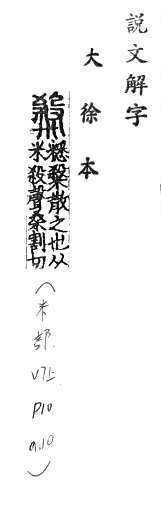 說文解字
大徐本
𥻦 糕䊝散之也从
米殺聲桑割切
(米部
v7上
p10
a.10
)